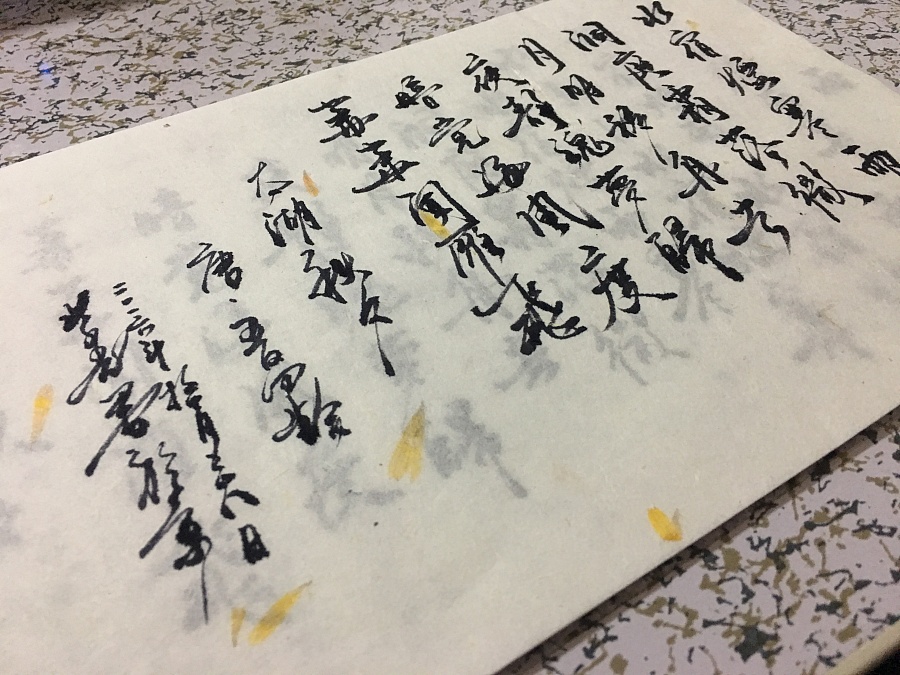 水宿煙寒雨
洞庭霜落微
月明移舟去
夜靜魂夢歸
暗覺海風度
蕭蕭聞雁飛
太湖秋夕
唐·王昌齡
拾月 日